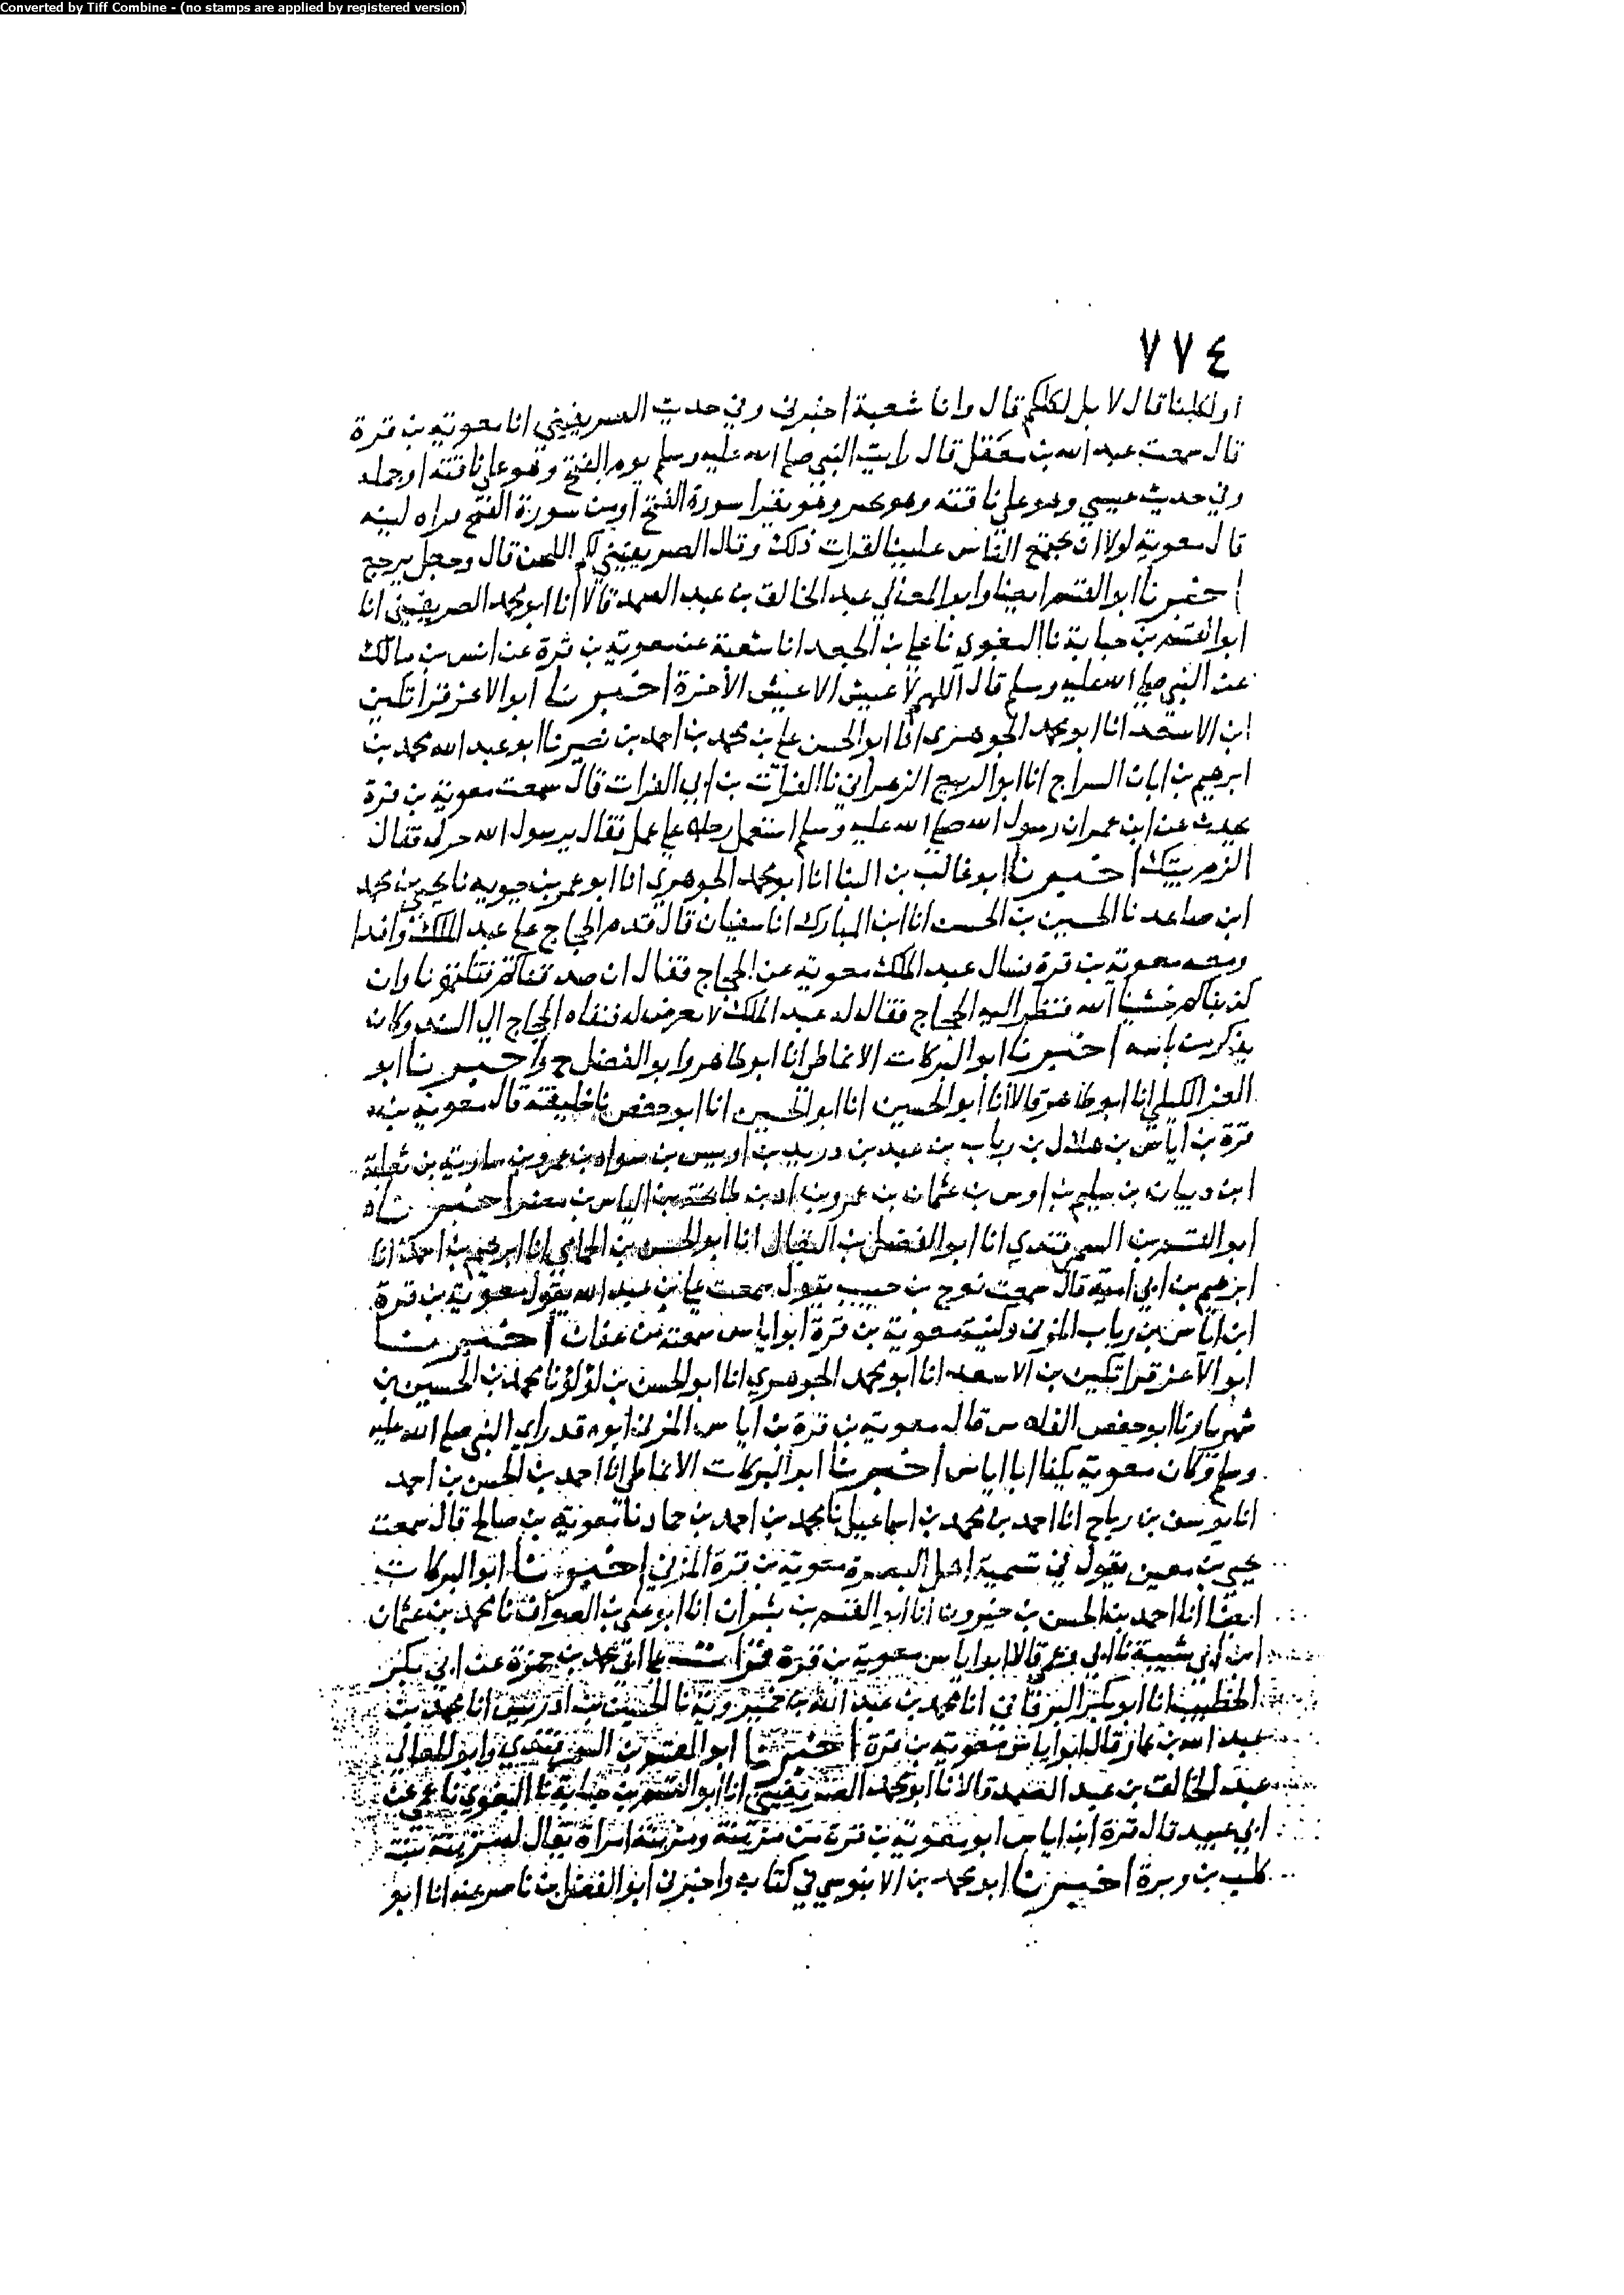 Converted by Tiff Combine - (no stamps are applied by registered version)
٧٧٤
او لكلنا قال لا بل لكلكم قال وانا شعبة اخبرني وفي حديث الصريفيني انا معوية بن قرة
قال سمعت عبد الله بن مغفل قال رايت النبي صلى الله عليه وسلم يوم الفتح وهو على ناقته او جمله
وفي حديث عيسى وهو على ناقته وهو وهو يقرا سورة الفتح او من سورة الفتح قراه لينه
قال معوية لولا ان يجتمع الناس علينا لقرات ذلك وقال الصريفيني لكم اللحن قال وجعل يرجع
اخبرنا ابو القسم ايضا وابو المعالي عبد الخالق بن عبد الصمد قالا انا ابو محمد الصريفيني انا
ابو القسم بن حبابة نا البغوي نا علي بن الجعد انا شعبة عن معوية بن قرة عن انس بن مالك
عن النبي صلى الله عليه وسلم قال اللهم لا عيش الا عيش الاخرة اخبرنا ابو الاعز قراتكين
ابن الاسعد انا ابو محمد الجوهري انا ابو الحسن علي بن محمد بن احمد بن نصير نا ابو عبد الله محمد بن
ابرهيم بن ابان السراج انا ابو الربيع الزهراني نا الفرات بن ابي الفرات قال سمعت معوية بن قرة
يحدث عن ابن عمر ان رسول الله صلى الله عليه وسلم استعمل رجلا على عمل فقال يرسول الله خر لي فقال
الزم بيتك اخبرنا ابو غالب بن البنا انا ابو محمد الجوهري انا ابو عمر بن حيويه نا يحيى بن محمد
ابن صاعد نا الحسين بن الحسن انا ابن المبارك انا سفيان قال قدم الحجاج على عبد الملك وافدا
ومعه معوية بن قرة فسال عبد الملك معوية عن الحجاج فقال ان صدقناكم قتلتمونا وان
كذبناكم خشينا الله فنظر اليه الحجاج فقال له عبد الملك لا تعرض له فنفاه الحجاج الى السند وكان
يذكر من باسه اخبرنا ابو البركات الانماطي انا ابو طاهر وابو الفضل ح واخبرنا ابو
العز الكيلي انا ابو طاهر قالا انا ابو الحسين انا ابو الحسين انا ابو حفص نا خليفة قال معوية بن
قرة بن اياس بن هلال بن رياب بن عبيد بن دريد بن اوس بن سواه بن عمرو بن سارية بن ثعلبة
ابن دبيان بن سليم بن اوس بن عثمان بن عمرو بن اد بن طابخة بن الياس بن مضر اخبرنا
ابو القسم بن السمرقندي انا ابو الفضل بن البقال انا ابو الحسن بن الحمامي انا ابرهيم بن احمد انا
ابرهيم بن ابي امية قال سمعت نوح بن حبيب يقول سمعت علي بن عبد الله يقول معوية بن قرة
ابن اياس بن رياب المزني وكنية معوية بن قرة ابو اياس سمعته من عفان اخبرنا
ابو الاعز قراتكين بن الاسعد انا ابو محمد الجوهري انا ابو الحسن بن لؤلؤ نا محمد بن الحسين بن
شهريار نا ابو حفص الفلاس قال معوية بن قرة بن اياس المزني ابوه قد راى النبي صلى الله عليه
وسلم وكان معوية يكنا ابا اياس اخبرنا ابو البركات الانماطي انا احمد بن الحسن بن احمد
انا يوسف بن رباح انا احمد بن محمد بن اسماعيل نا محمد بن احمد بن حماد نا معوية بن صالح قال سمعت
يحيى بن معين يقول في تسمية اهل البصرة معوية بن قرة المزني اخبرنا ابو البركات
ايضا انا احمد بن الحسن بن خيرون انا ابو القسم بن بشران انا ابو علي بن الصواف نا محمد بن عثمان
ابن ابي شيبة نا ابي قالا ابو اياس معوية بن قرة قرات على ابي محمد بن حمزة عن ابي بكر
الخطيب انا ابو بكر البرقاني انا محمد بن عبد الله بن خميرويه نا الحسين بن ادريس انا محمد بن
عبد الله بن عمار قال ابو اياس معوية بن قرة اخبرنا ابو القسم بن السمرقندي وابو المعالي
عبد الخالق بن عبد الصمد قالا انا ابو محمد الصريفيني انا ابو القسم بن حبابة نا البغوي نا عن
ابي عبيد قال قرة ابن اياس ابو معوية بن قرة من مزينة ومزينة امراة يقال لها مزينة بنت
كلب بن وبرة اخبرنا ابو محمد بن الابنوسي في كتابه واخبرني ابو الفضل بن ناصر عنه انا ابو